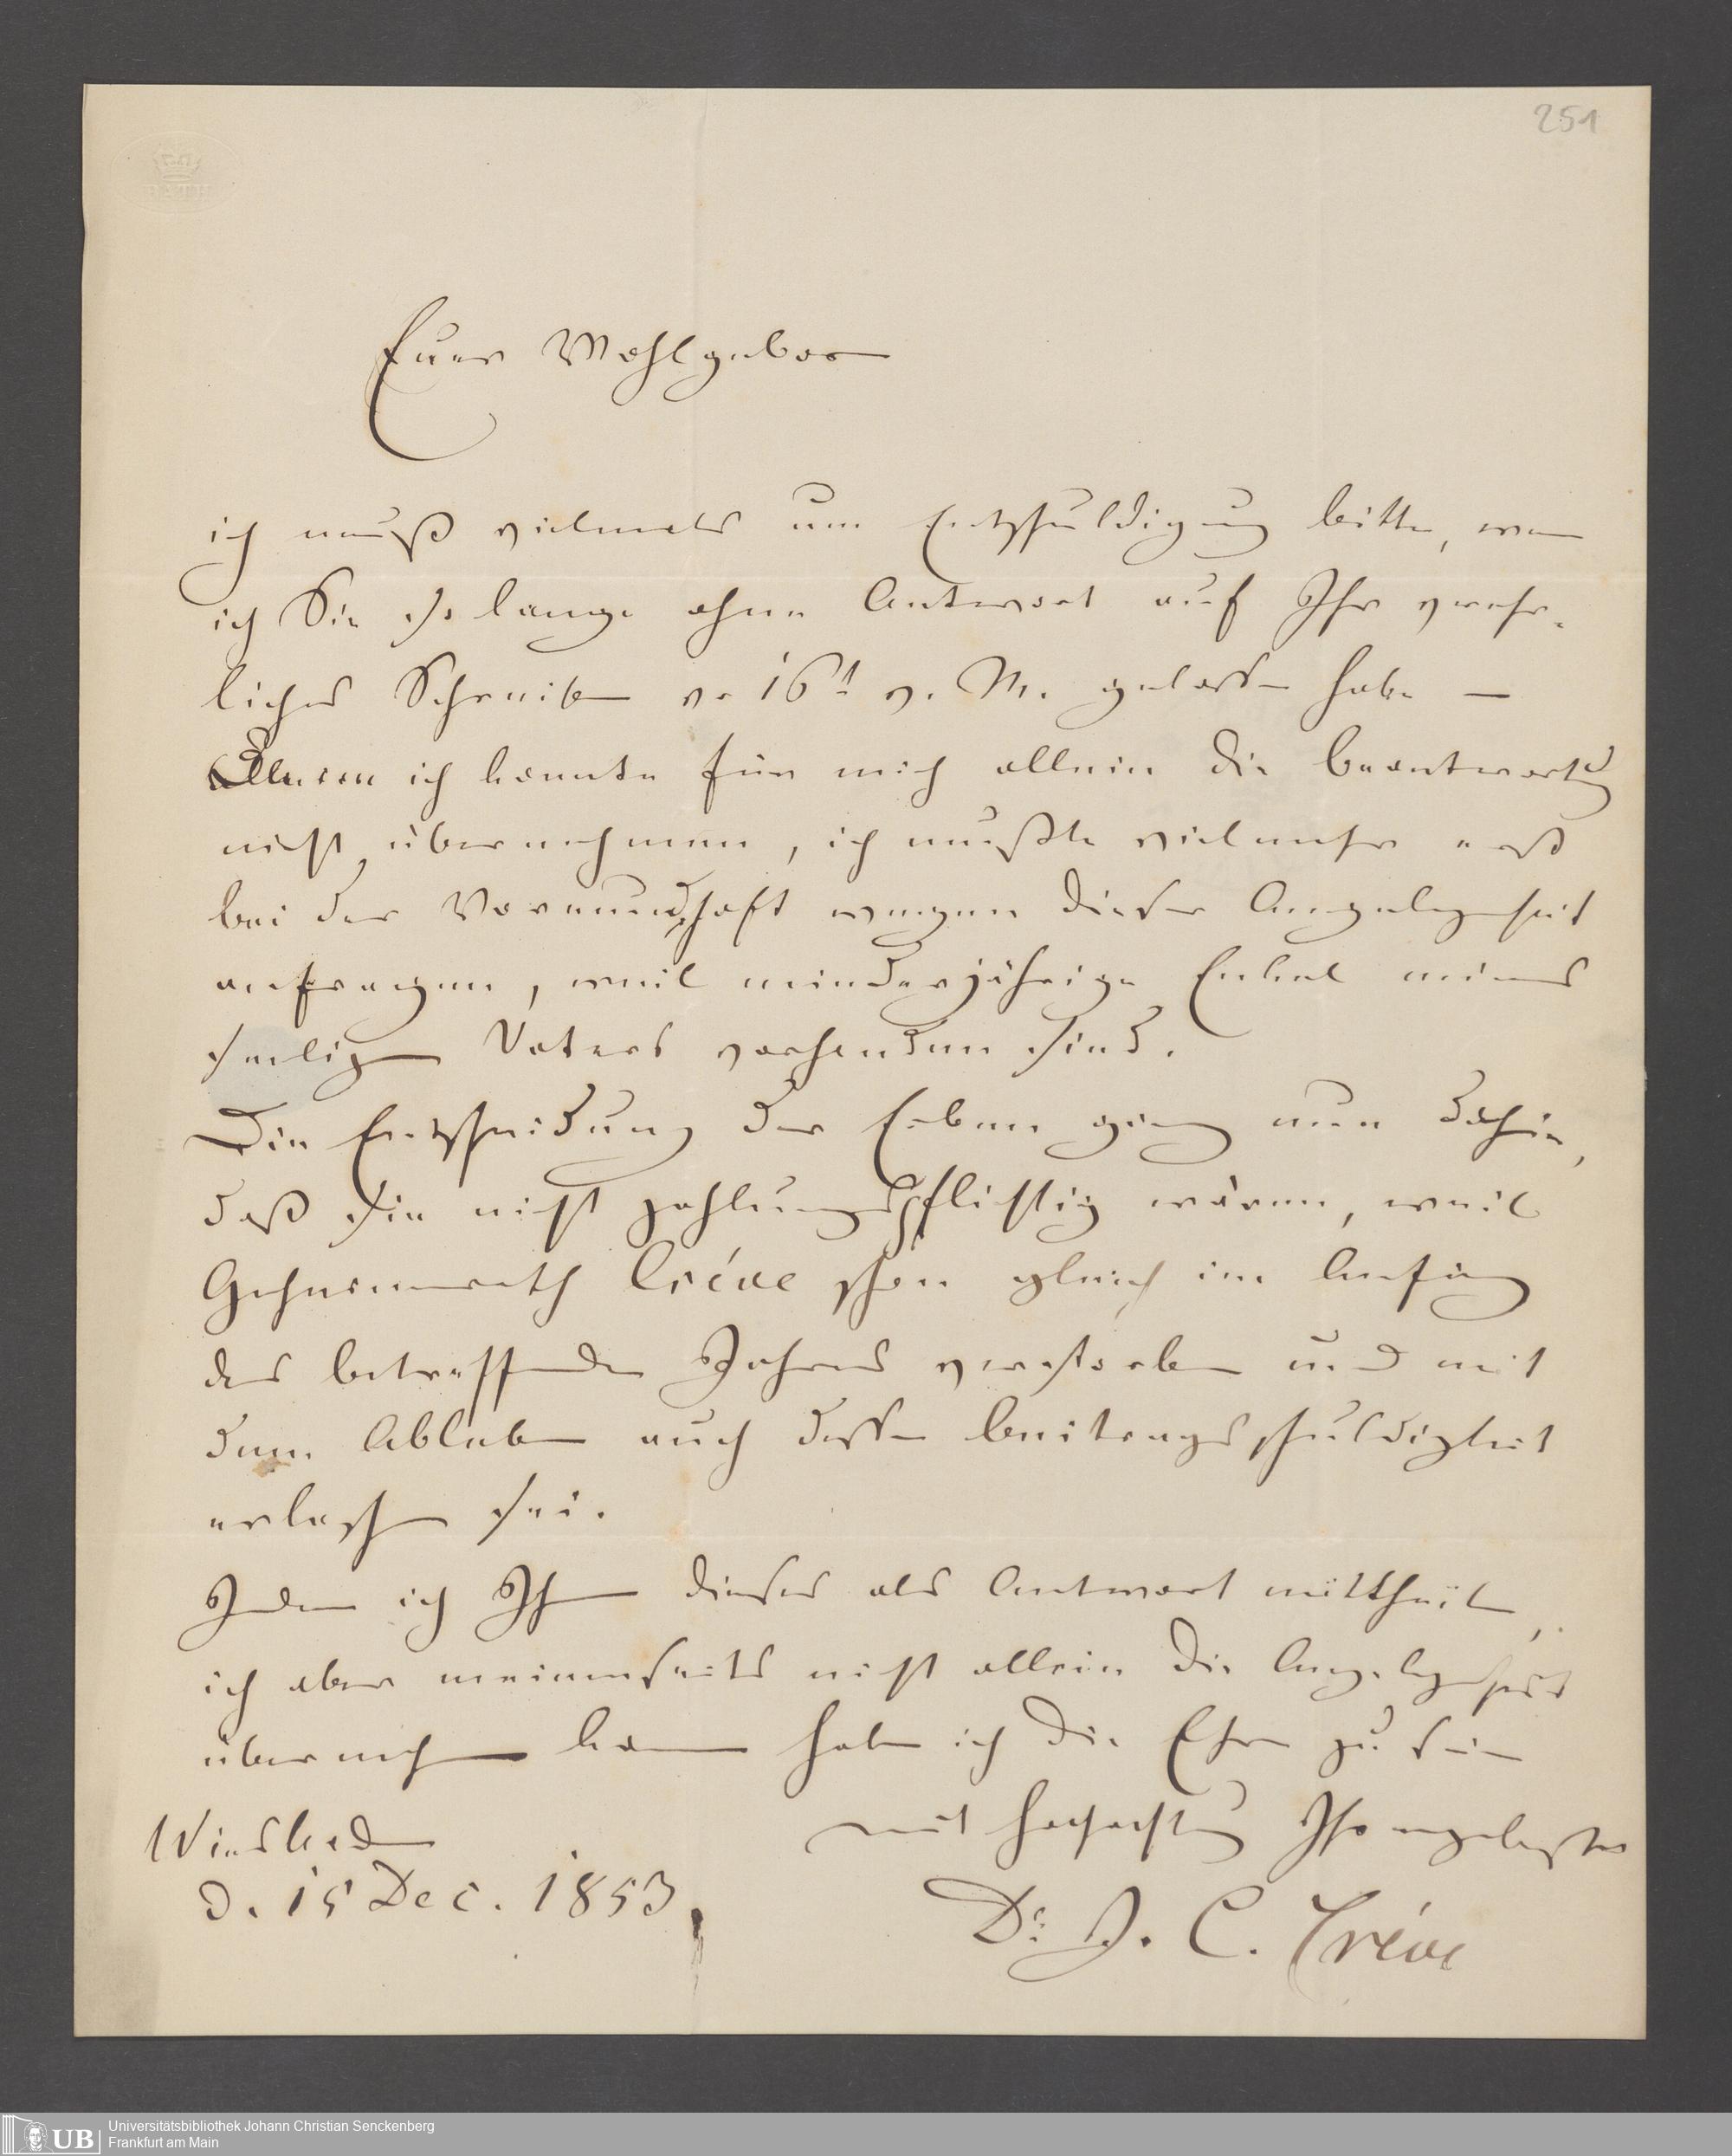 251
Euer Wohlgeboren
ich muß vielmals um Entschuldigung bitten, wenn
ich Sie so lange ohne Antwort auf Ihr verehr-
liches Schreiben v. 16t v. M. gelassen habe –
Allein ich konnte für mich allein die Beantwortung
nicht übernehmen, ich mußte vielmehr erst
bei der Vormundschaft wegen dieser Angelegenheit
anfragen, weil minderjährige Enkel meines
seeligen Vaters vorhanden sind.
Die Entscheidung der Erben ging nun dahin,
daß sie nicht zahlungspflichtig wären, weil
Geheimerath Créve schon gleich im Anfang
des betreffenden Jahres verstorben und mit
dem Ableben auch dessen Beitragsschuldigkeit
erloschen sei.
Indem ich Ihnen dieses als Antwort mittheile,
ich aber meinerseits nicht allein die Angelegenheit
übernehmen kann habe ich die Ehre zu sein
mit Hochachtung Ihr ergebenster
Wiesbaden
d. 15 Dec. 1853
Dr. J. C. Créve
UB
Universitätsbibliothek Johann Christian Senckenberg
Frankfurt am Main